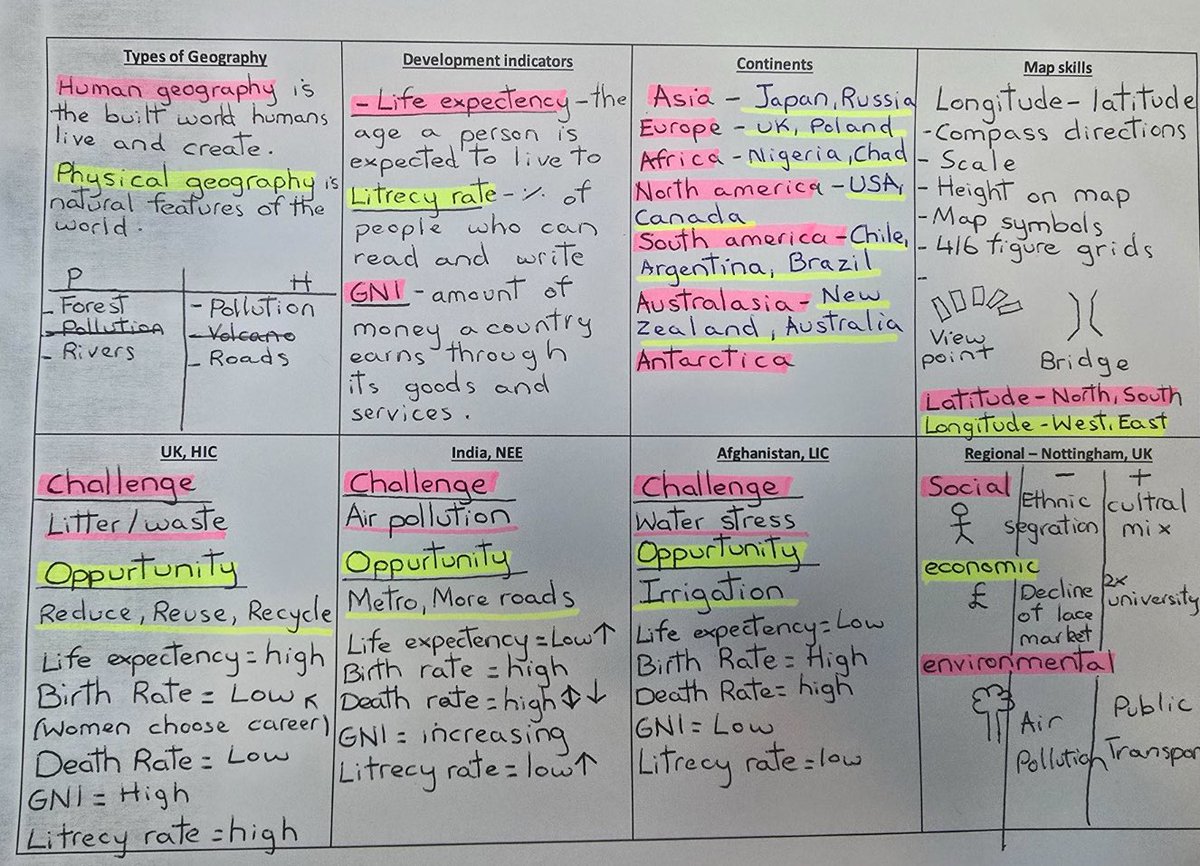 Types of Geography
Human geography is
the built world humans
live and create.
Physical geography is
natural features of the
world.
P H
- Forest - Pollution
- Pollution - Volcano
- Rivers - Roads
Development indicators
- Life expectency - the
age a person is
expected to live to
Litrecy rate - % of
people who can
read and write
GNI - amount of
money a country
earns through
its goods and
services.
Continents
Asia - Japan, Russia
Europe - UK, Poland
Africa - Nigeria, Chad
North america - USA,
Canada
South america - Chile,
Argentina, Brazil
Australasia - New
Zealand, Australia
Antarctica
Map skills
Longitude - latitude
- Compass directions
- Scale
- Height on map
- Map symbols
- 4/6 figure grids
-
View
point
Bridge
Latitude - North, South
Longitude - West, East
UK, HIC
Challenge
Litter/waste
Oppurtunity
Reduce, Reuse, Recycle
Life expectency = high
Birth Rate = Low
(Women choose career)
Death Rate = Low
GNI = High
Litrecy rate = high
India, NEE
Challenge
Air pollution
Oppurtunity
Metro, More roads
Life expectency = Low ↑
Birth rate = high
Death rate = high ↕ ↓
GNI = increasing
Litrecy rate = low ↑
Afghanistan, LIC
Challenge
Water stress
Oppurtunity
Irrigation
Life expectency = Low
Birth Rate = High
Death Rate = high
GNI = Low
Litrecy rate = low
Regional – Nottingham, UK
- +
Social
Ethnic segration
cultral mix
economic
£
Decline of lace market
2x university
environmental
Air Pollution
Public Transpor